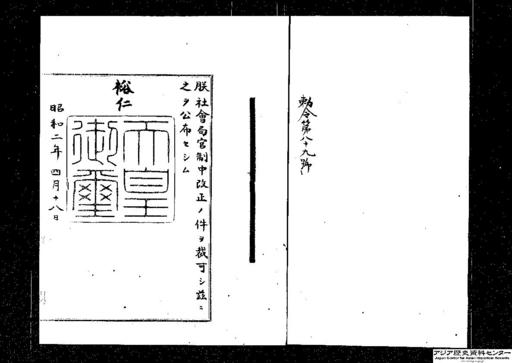 勅令第八十九號
朕社會局官制中改正ノ件ヲ裁可シ茲ニ
之ヲ公布セシム
裕仁
天皇
御璽
昭和二年四月十八日
アジア歴史資料センター
Japan Center for Asian Historical Records